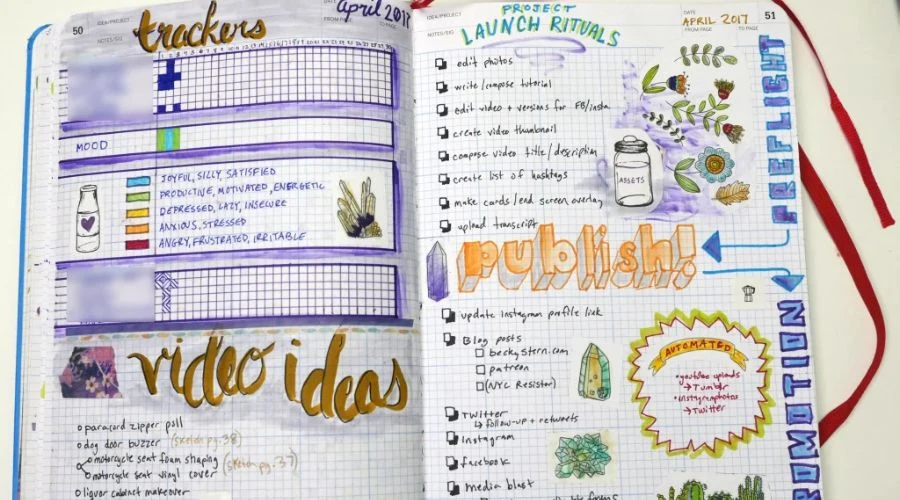 50
IDEA/PROJECT
NOTES/SIG
DATE
april 2017
FROM PAGE
TO PAGE
trackers
1 2 3 4 5 6 7 8 9 10 11 12 13 14 15 16 17 18 19 20 21 22 23 24 25 26 27 28 29 30
MOOD
JOYFUL, SILLY, SATISFIED
PRODUCTIVE, MOTIVATED, ENERGETIC
DEPRESSED, LAZY, INSECURE
ANXIOUS, STRESSED
ANGRY, FRUSTRATED, IRRITABLE
video ideas
paracord zipper pull
dog door buzzer (sketch pg. 38)
motorcycle seat foam shaping
motorcycle seat vinyl cover (sketch pg. 37)
liquor cabinet makeover
IDEA/PROJECT
NOTES/SIG
PROJECT
LAUNCH RITUALS
DATE
APRIL 2017
FROM PAGE
TO PAGE
51
edit photos
write/compose tutorial
edit video + versions for FB/insta
create video thumbnail
compose video title/description
create list of hashtags
make cards/end screen, overlay
upload transcript
ASSETS
PREFLIGHT
publish!
update instagram profile link
Blog posts
beckystern.com
patreon
(NYC Resistor)
Twitter
↳ follow-up + retweets
Instagram
facebook
media blast
AUTOMATED
• youtube uploads
→ Tumblr
• instagram photos
→ Twitter
ROMOTION